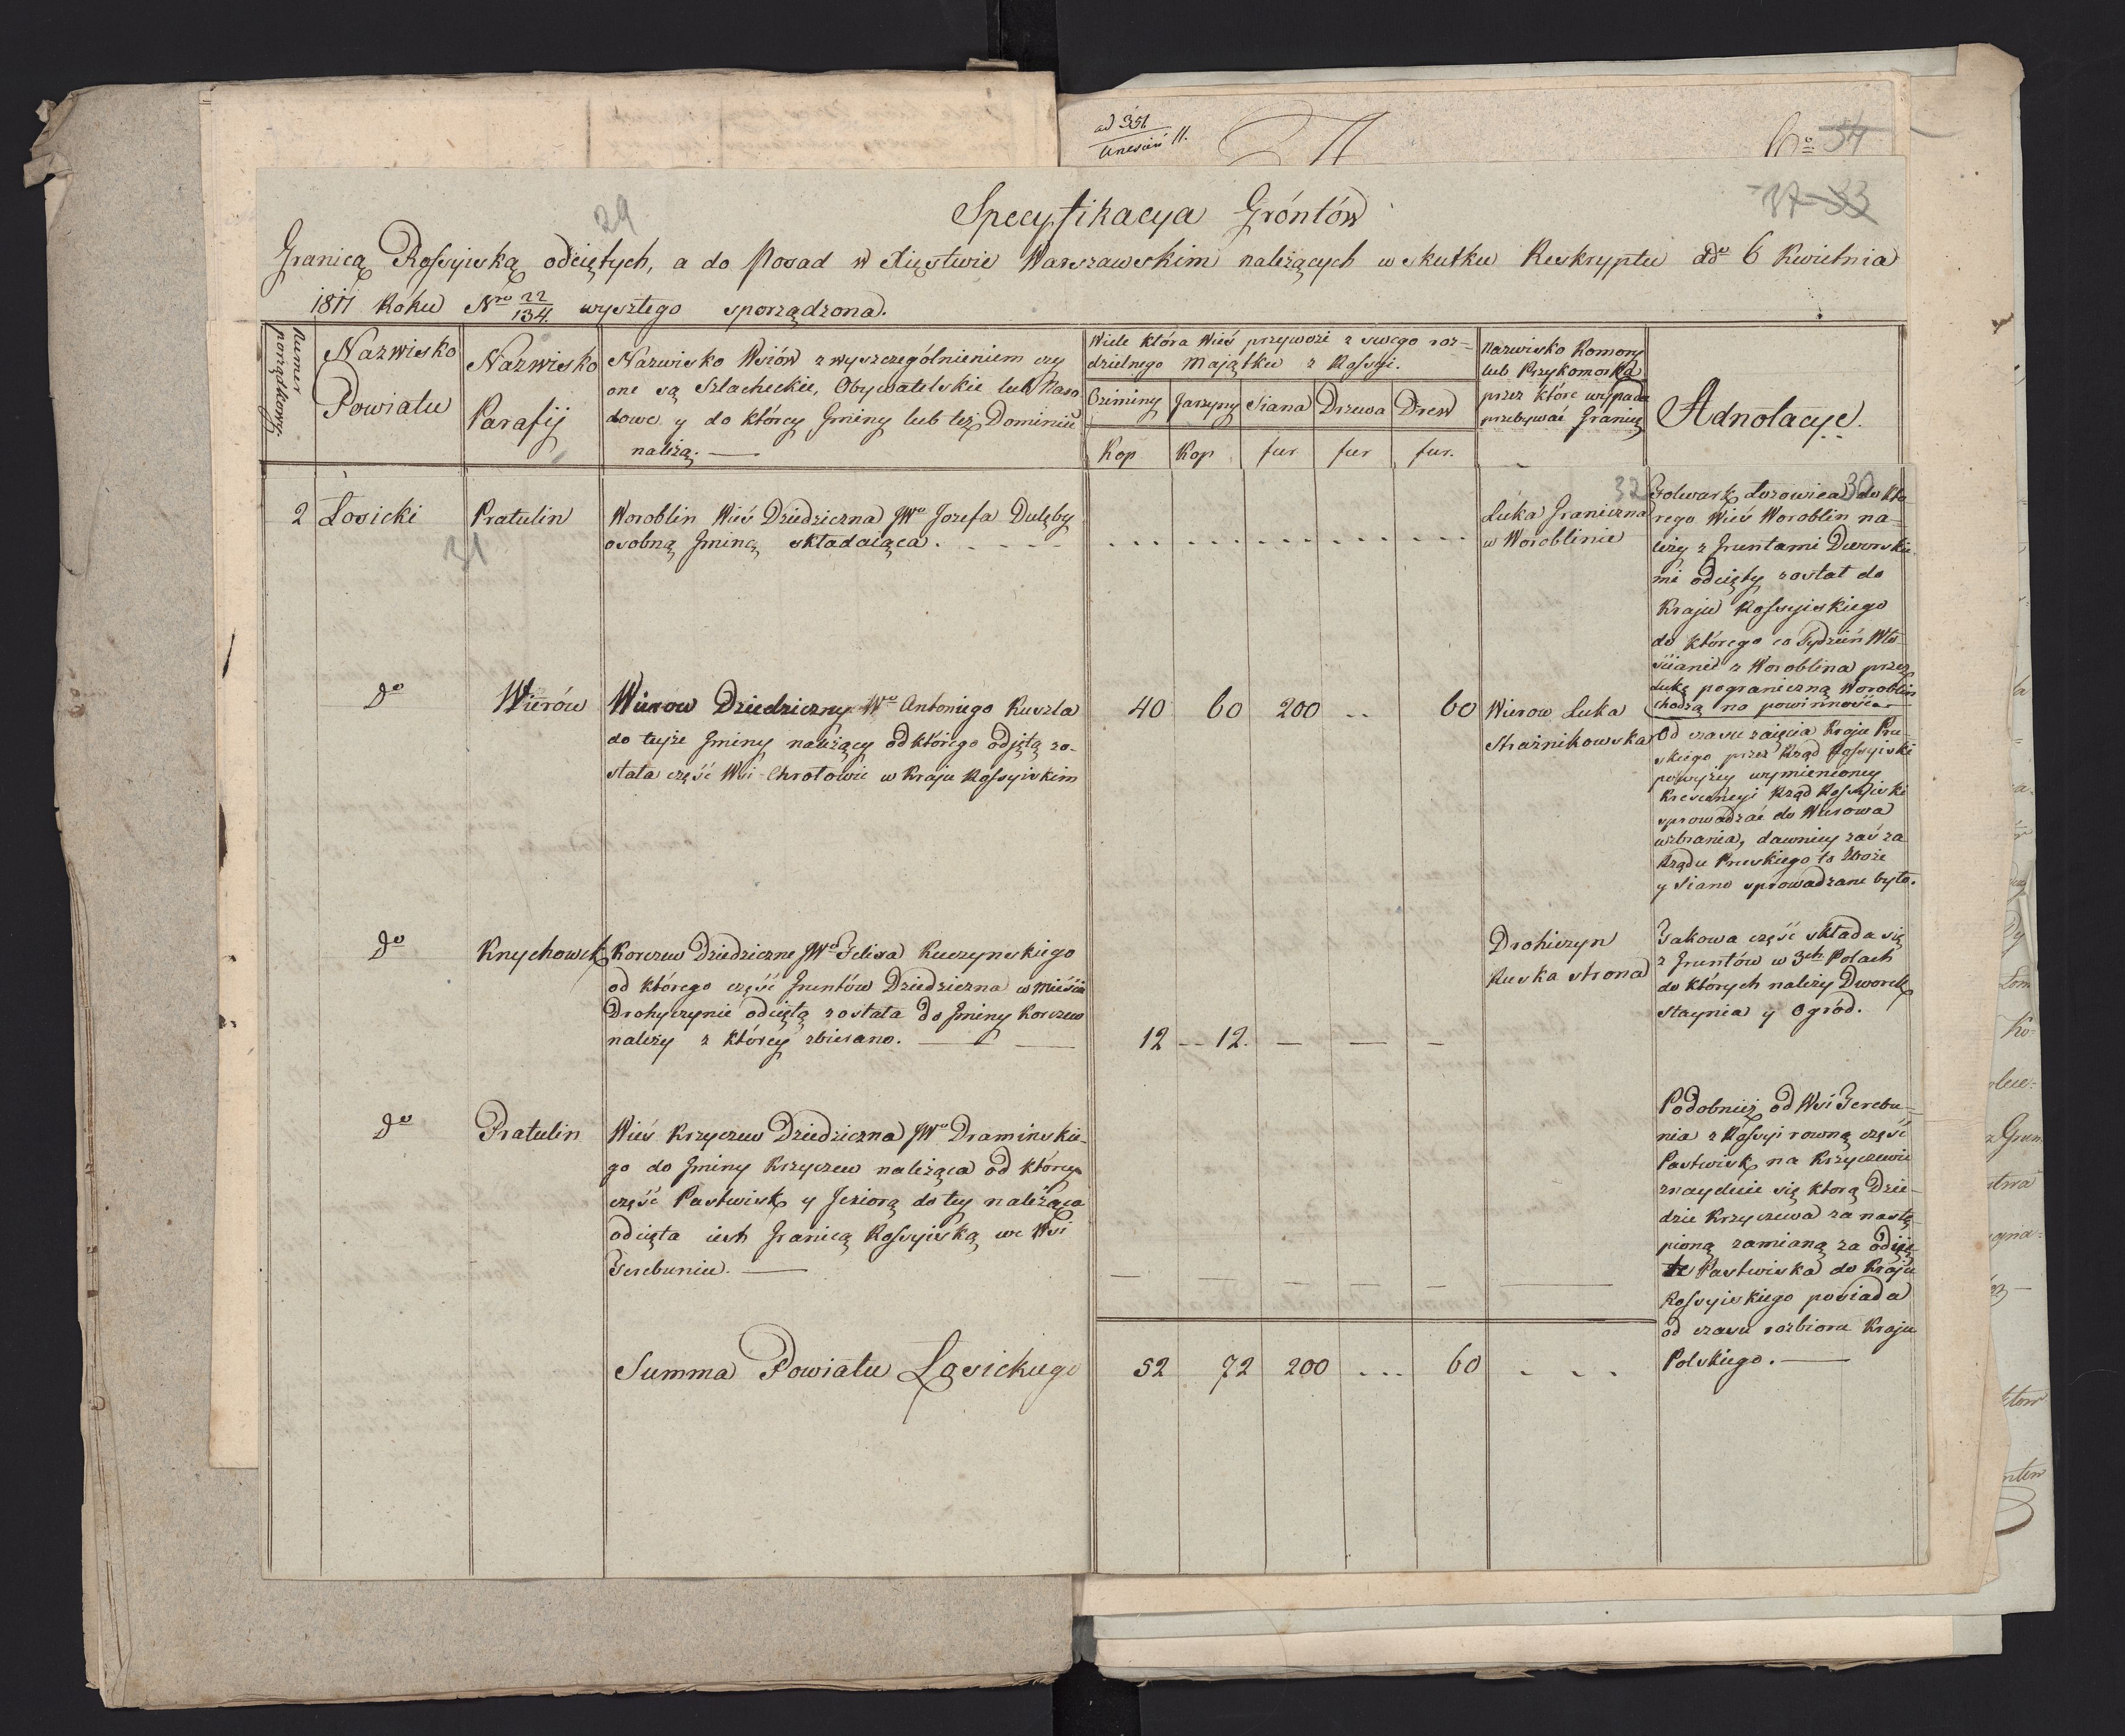 ad 351
37 33
29
Specyfikacya Gróntów
Granicą Rossyiską odciętych, a do Posad w Xięstwie Warszawskim należących w skutku Reskryptu ddo 6 Kwietnia
1811 Roku Nro 22/134. wyszłego sporządzona.
Numer porządkowy.
Nazwisko
Powiatu
Nazwisko
Parafij
Nazwisko Wsiów z wyszczególnieniem czy
one są Szlacheckie, Obywatelskie lub Naro
dowe y do którey Gminy lub też Dominiu
należą.
Wiele która Wieś przywozi z swego roz=
dzielnego Majątku z Rossyi.
Oziminy Jarzyny Siana Drzewa Drew
Kop Kop fur fur fur.
Nazwisko Komory
lub Przykomorka
przez które wypada
przebywać Granicę
Adnotacye.
2 Łosicki
Pratulin
31
Woroblin Wieś Dziedziczna JWo Jozefa Dulęby
osobną Gminę składaiąca.
Luka Graniczna
w Woroblinie
32
30
Folwark Łozowica do któ
rego Wieś Woroblin na=
leży z Gruntami Dworski
mi odcięty został do
Kraju Rossyiskiego
do którego co Tydzień Wło
ścianie z Woroblina przez
Lukę pograniczną Woroblin
chodzą na powinność
do
Wierów
Wierow Dziedziczny Wo Antoniego Kuszla
do teyże Gminy należący od którego odjętą zo-
stała część Wsi Chrołowic w Kraju Rossyiskim
40 60 200 .. 60
Wierow Luka
Strażnikowska
Od czasu zaięcia Kraju Pru-
skiego przez Rząd Rossyiski
powyżey wymienioney
Krescencyi Rząd Rossyiski
sprowadzać do Wierowa
wzbrania, dawniey zaś za
Rządu Pruskiego to Zboże
y Siano sprowadzane było.
do
Knychowek
Korczew Dziedziczne JWo Felixa Kuczynskiego
od którego część Gruntów Dziedziczna w Mieście
Drohyczynie odciętą została do Gminy Korczew
należy z którey zbierano.
12 — 12. — — —
Drohiczyn
Ruska strona
Jakowa część składa się
z Gruntów w 3ch Polach
do których należy Dworek
Staynia y Ogród.
do
Pratulin
Wieś Krzyczew Dziedziczna JWo Draminskie-
go do Gminy Krzyczew należąca od którey
część Pastwisk y Jeziorą do tey należąca
odcięta iest Granicą Rossyiską we Wsi
Terebuniu.
Podobnież od Wsi Terebu-
nia z Rossyi rowną część
Pastwisk na Krzyczewie
znayduie się którą Dzie-
dzic Krzyczewa za nastą-
pioną zamianą za odję-
te Pastwiska do Kraju
Rossyiskiego posiada
od czasu rozbioru Kraju
Polskiego.
Summa Powiatu Łosickiego
52 72 200 ... 60 . . .